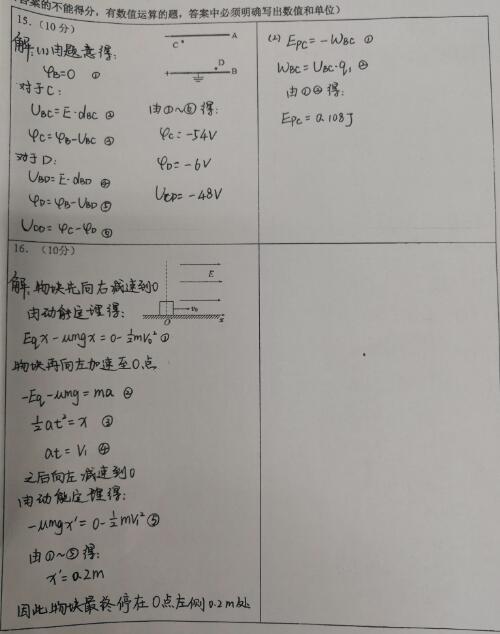 答案的不能得分，有数值运算的题，答案中必须明确写出数值和单位）
15.（10分）
A
C
D
B
解:(1)由题意得:
φB=0 ①
对于C:
UBC=E·dBC ②
φC=φB-UBC ③
对于D:
UBD=E·dBD ④
φD=φB-UBD ⑤
UCD=φC-φD ⑥
由①~⑥得:
φC=-54V
φD=-6V
UCD=-48V
(2) EPC=-WBC ①
WBC=UBC·q1 ②
由①②得:
EPC=0.108J
16.（10分）
E
v0
O
x
解:物块先向右减速到0
由动能定理得:
Eqx-umgx=0-½mV0² ①
物块再向左加速至O点
-Eq-umg=ma ②
½at²=x ③
at=V1 ④
之后向左减速到0
由动能定理得:
-umgx'=0-½mV1² ⑤
由①~⑤得:
x'=0.2m
因此物块最终停在O点左侧0.2m处